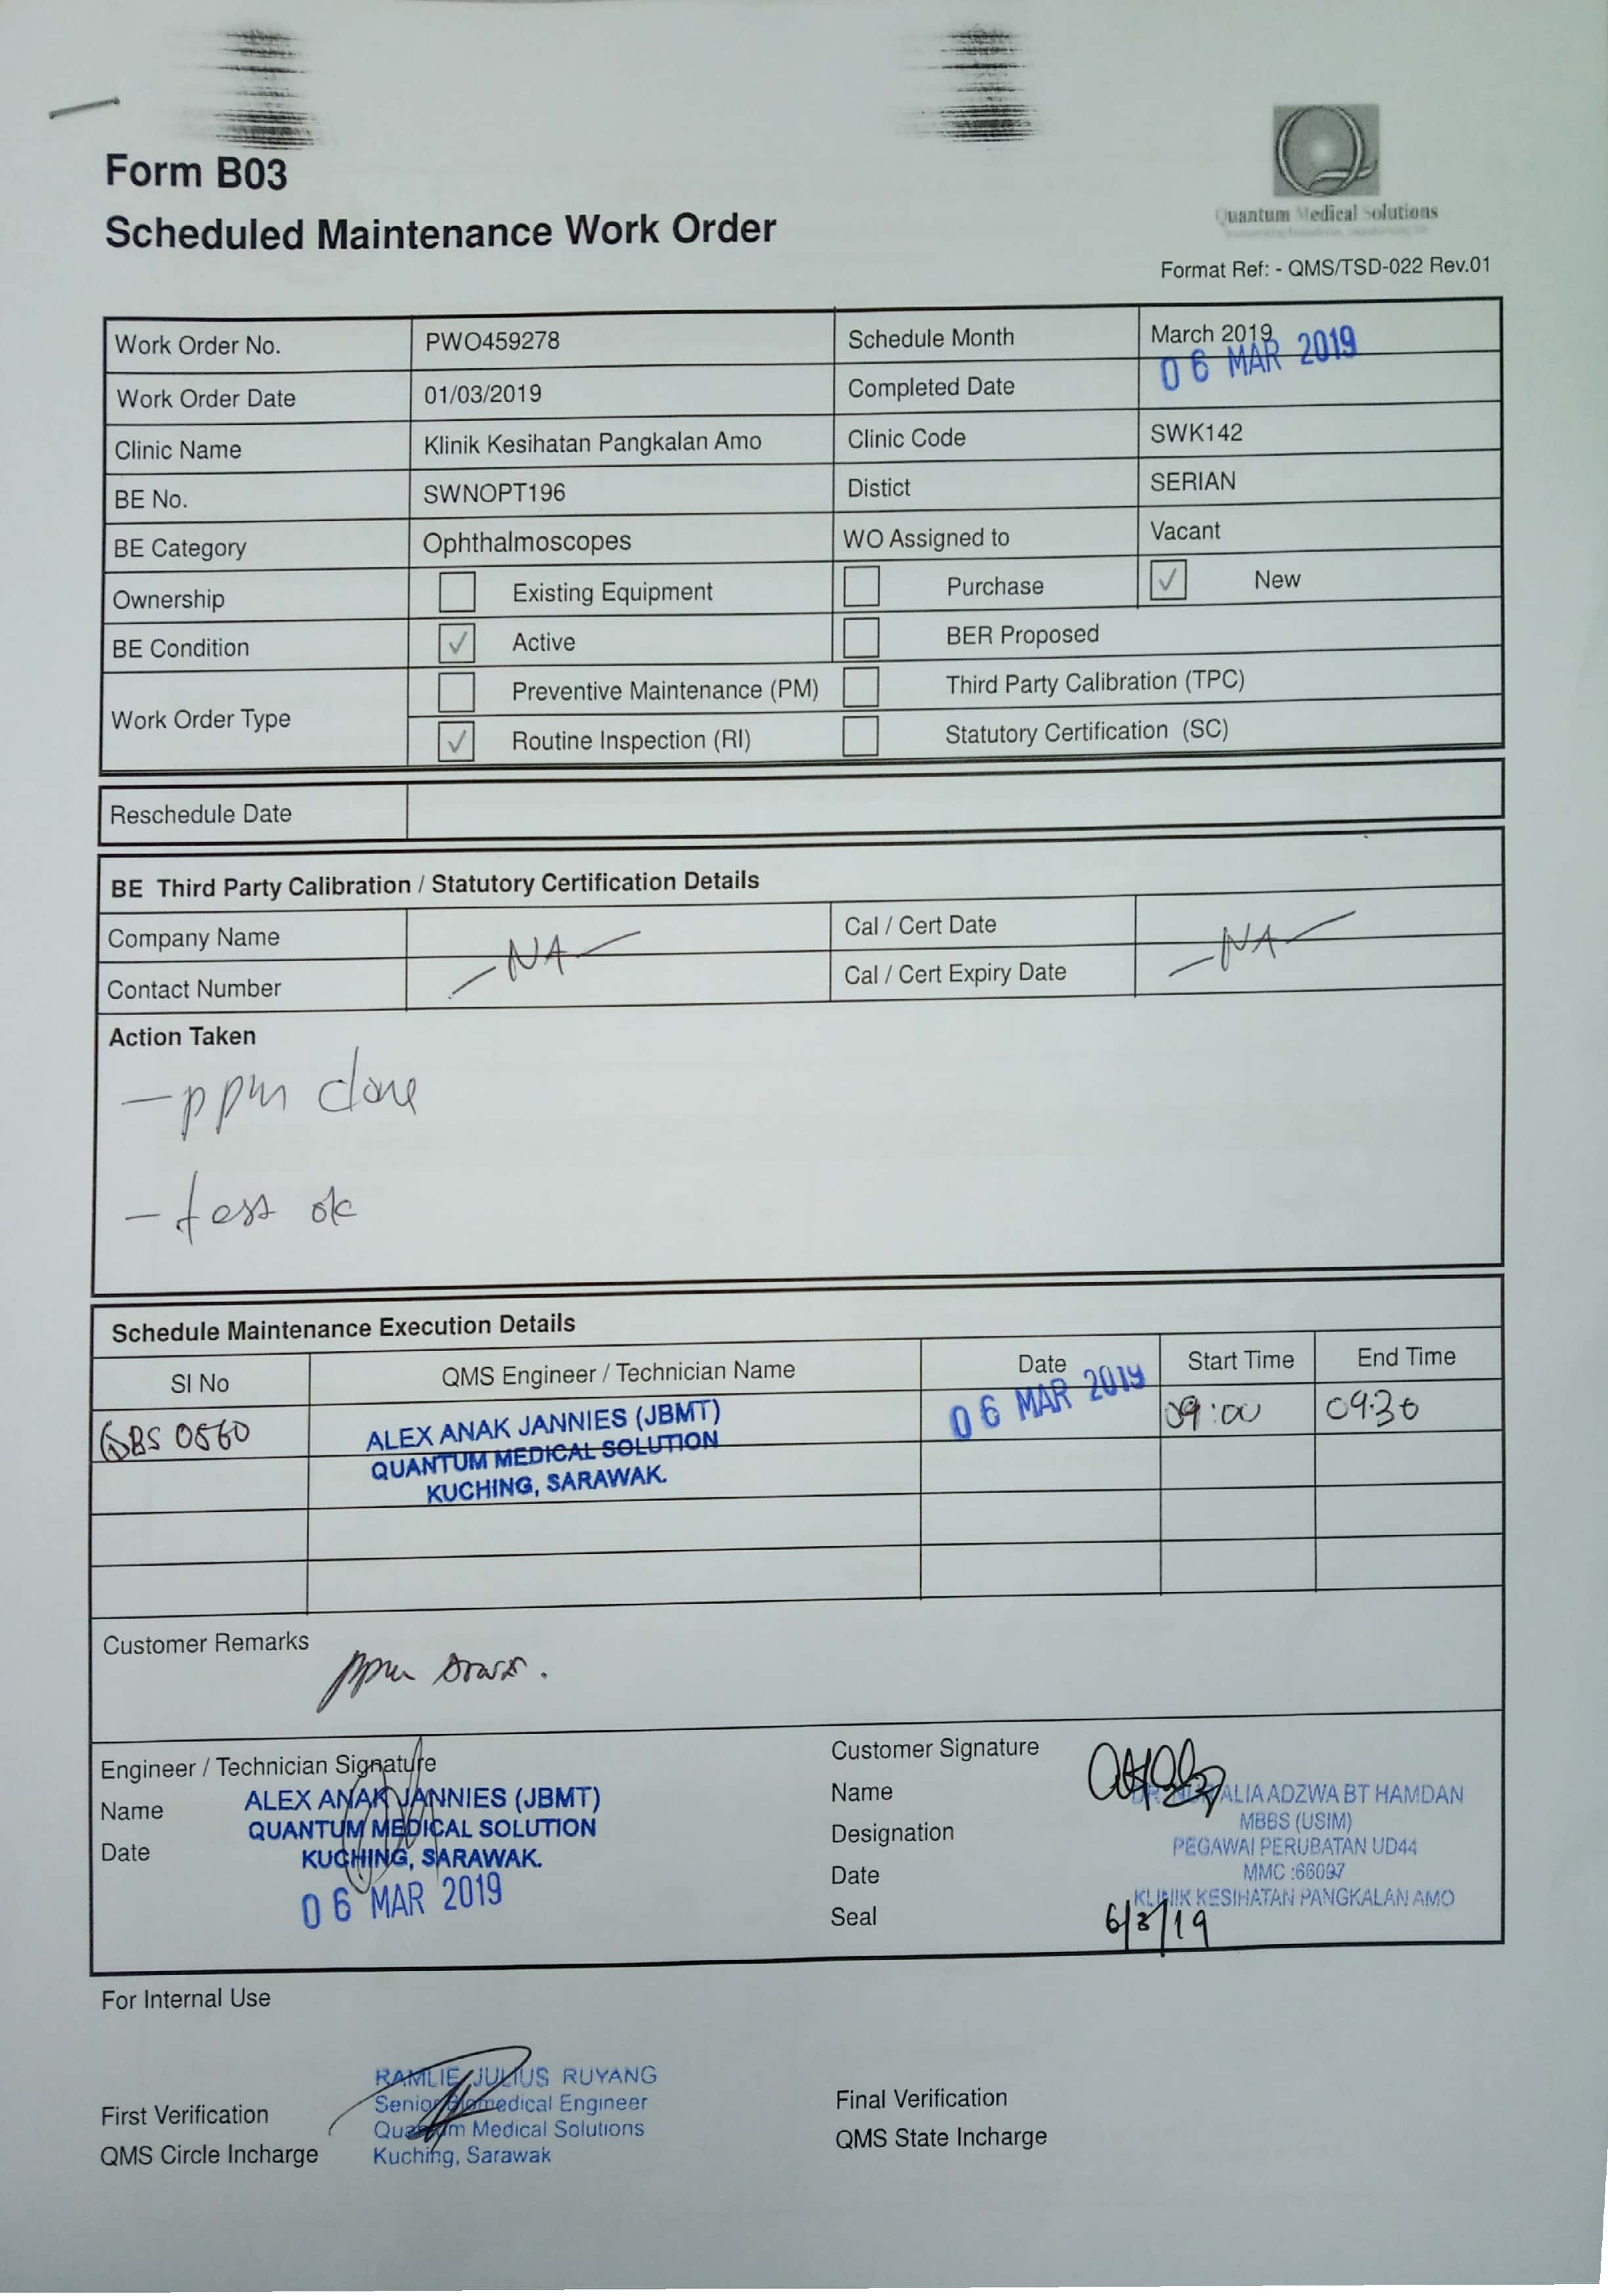 Form B03
Scheduled Maintenance Work Order
Quantum Medical Solutions
Format Ref: - QMS/TSD-022 Rev.01
Work Order No. PWO459278 Schedule Month March 2019
Work Order Date 01/03/2019 Completed Date 06 MAR 2019
Clinic Name Klinik Kesihatan Pangkalan Amo Clinic Code SWK142
BE No. SWNOPT196 Distict SERIAN
BE Category Ophthalmoscopes WO Assigned to Vacant
Ownership Existing Equipment Purchase ✓ New
BE Condition ✓ Active BER Proposed
Work Order Type
Preventive Maintenance (PM) Third Party Calibration (TPC)
✓ Routine Inspection (RI) Statutory Certification (SC)
Reschedule Date
BE Third Party Calibration / Statutory Certification Details
Company Name Cal / Cert Date
— NA — — NA —
Contact Number Cal / Cert Expiry Date
Action Taken
— ppm done
— tess ok
Schedule Maintenance Execution Details
SI No QMS Engineer / Technician Name Date Start Time End Time
QBS 0560 ALEX ANAK JANNIES (JBMT) 06 MAR 2019 09:00 09:30
QUANTUM MEDICAL SOLUTION
KUCHING, SARAWAK.
Customer Remarks
ppm
Engineer / Technician Signature
Name ALEX ANAK JANNIES (JBMT)
QUANTUM MEDICAL SOLUTION
Date KUCHING, SARAWAK.
06 MAR 2019
Customer Signature
Name ALIA ADZWA BT HAMDAN
MBBS (USIM)
Designation PEGAWAI PERUBATAN UD44
Date MMC :66097
KLINIK KESIHATAN PANGKALAN AMO
Seal 6/3/19
For Internal Use
RAMLIE JULIUS RUYANG
Senior Biomedical Engineer
First Verification Quantum Medical Solutions
QMS Circle Incharge Kuching, Sarawak
Final Verification
QMS State Incharge